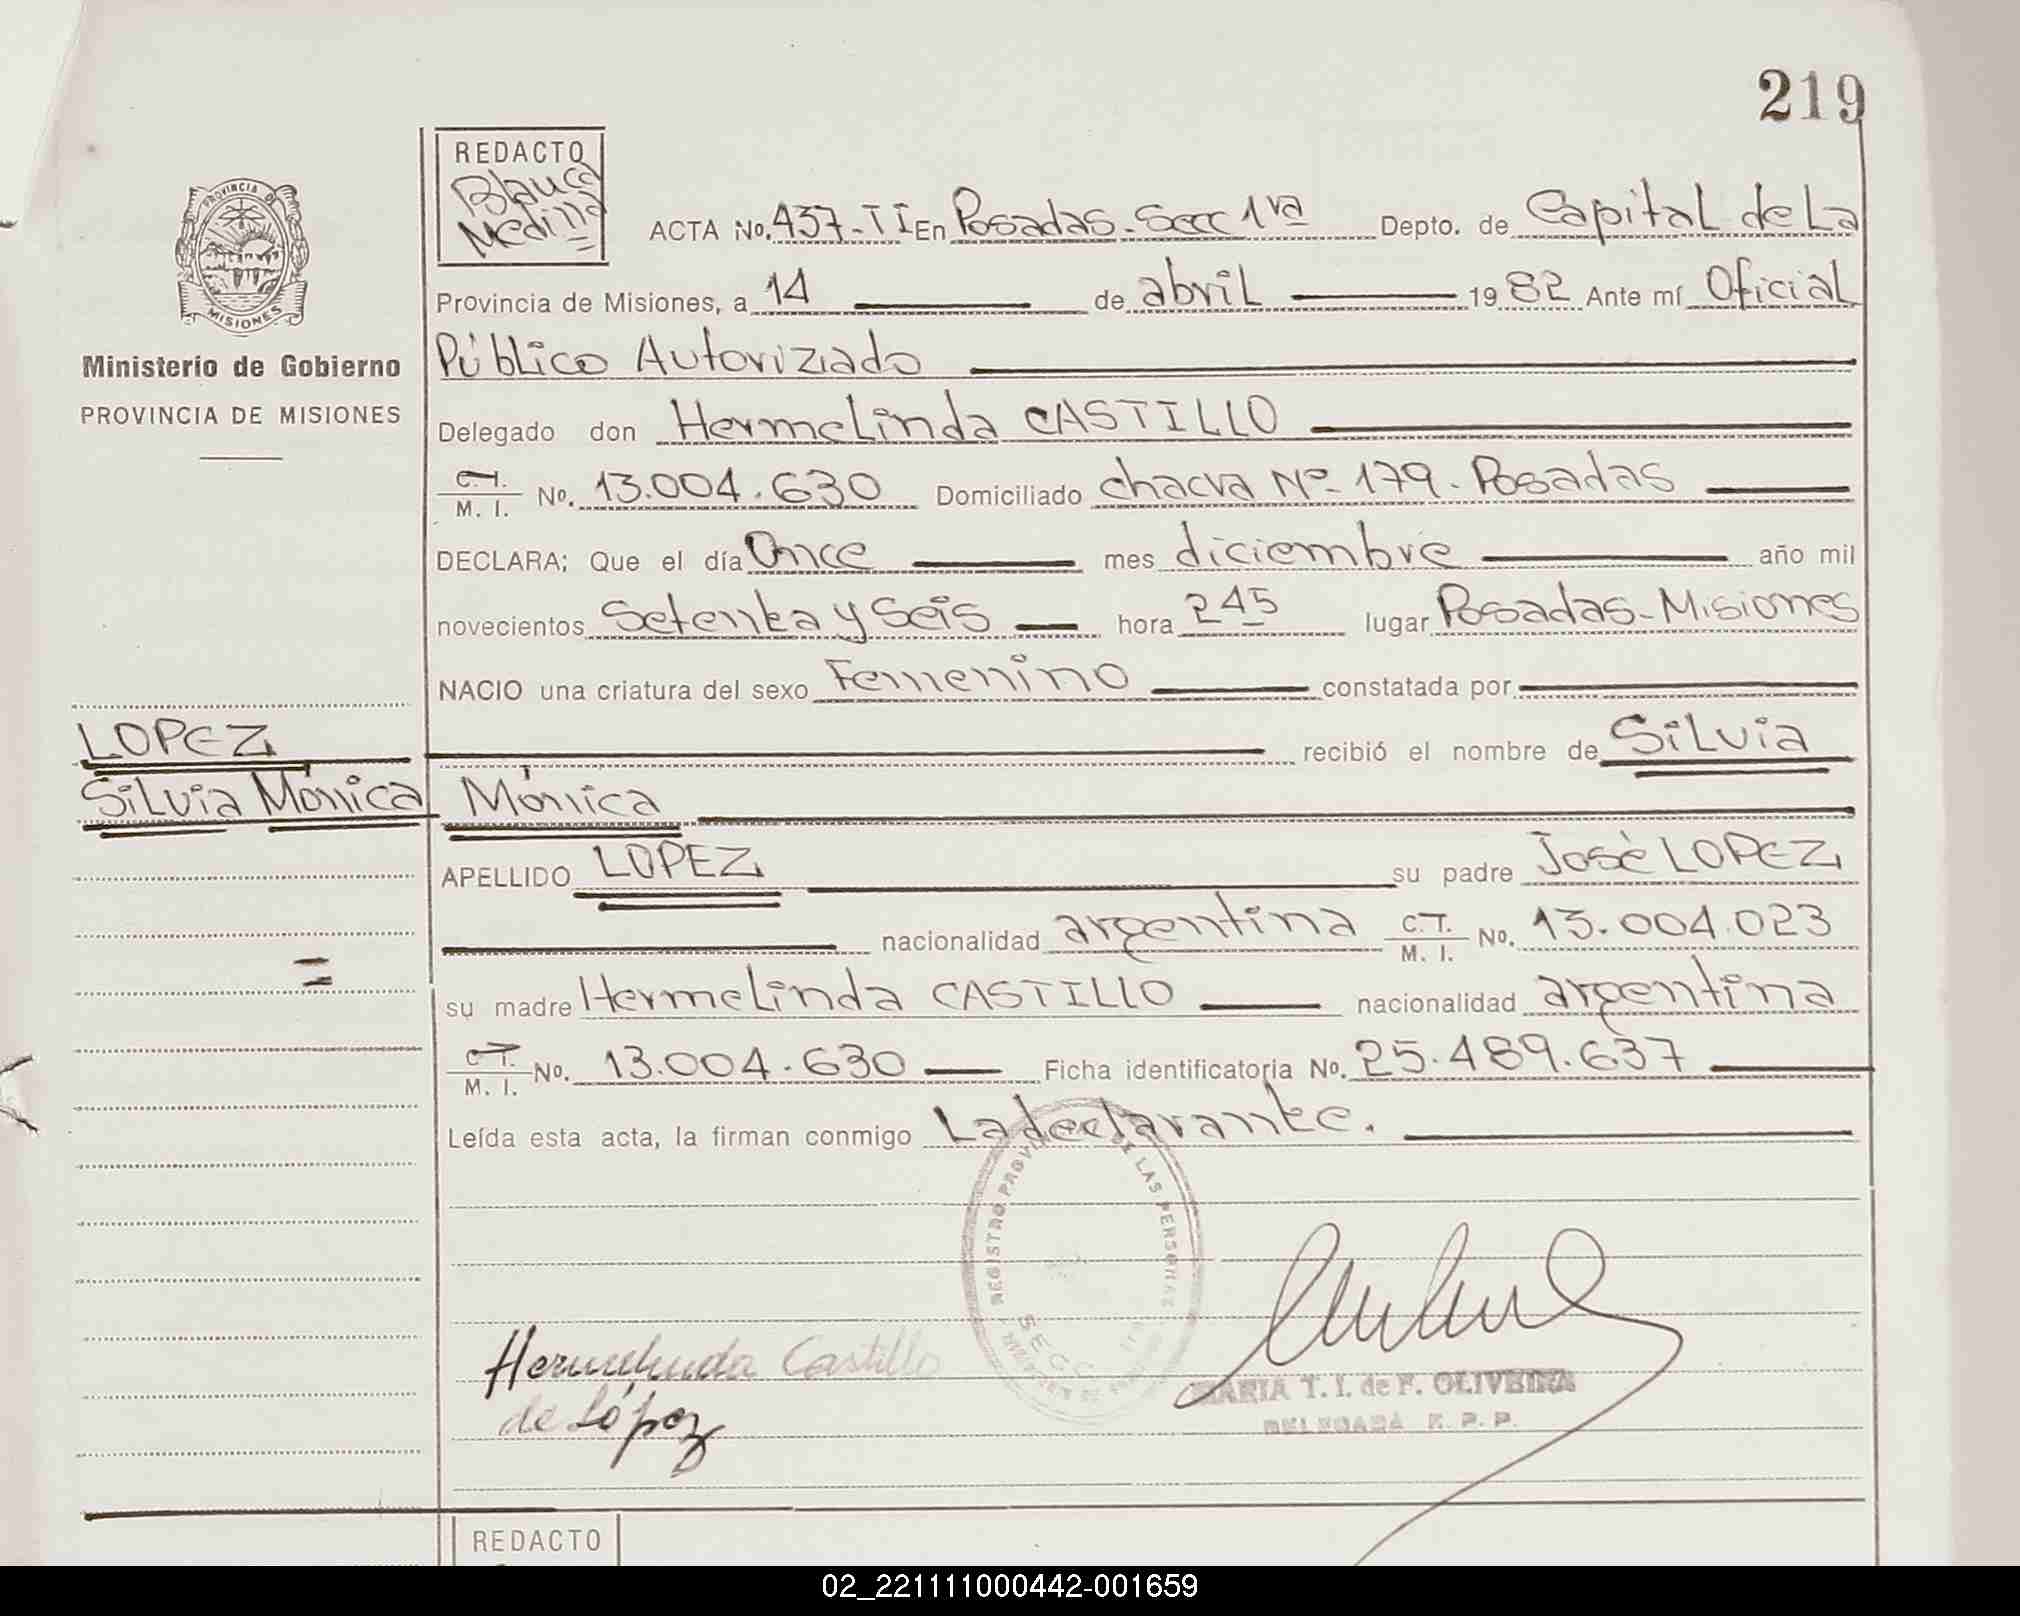 219
REDACTO
Blanca
Medina
PROVINCIA DE
MISIONES
Ministerio de Gobierno
PROVINCIA DE MISIONES
ACTA No. 437-TI En Posadas-Secc 1va Depto. de Capital de La
Provincia de Misiones, a 14 de abril 1982 Ante mí Oficial
Público Autoriziado
Delegado don Hermelinda CASTILLO
C.I. M. I. No. 13.004.630 Domiciliado chacra Nº 179-Posadas
DECLARA; Que el día Once mes diciembre año mil
novecientos Setenta y Seis hora 245 lugar Posadas-Misiones
NACIO una criatura del sexo Femenino constatada por
LOPEZ
recibió el nombre de Silvia
Silvia Mónica
Mónica
APELLIDO LOPEZ su padre José LOPEZ
nacionalidad argentina C.I. M. I. No. 13.004.023
su madre Hermelinda CASTILLO nacionalidad argentina
C.I. M. I. No. 13.004.630 Ficha identificatoria No. 25.489.637
Leída esta acta, la firman conmigo La declarante.
REGISTRO PROV DE LAS PERSONAS
SECC
Hermelinda Castillo
de López
MARIA T. I. de F. OLIVEIRA
DELEGADA R. P. P.
REDACTO
02_221111000442-001659